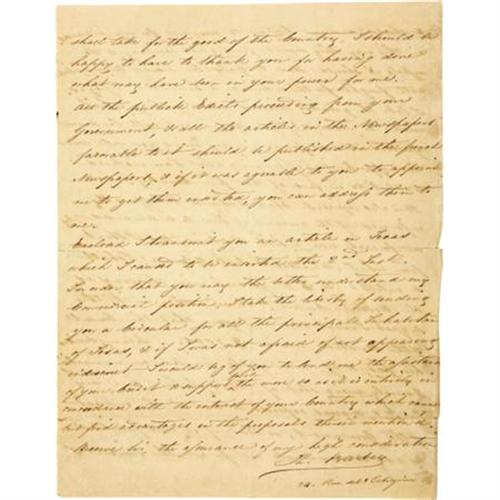 shall take for the good of the Country, I should be
happy to have to thank you for having done
what may have been in your power for me.
All the publick Edicts proceeding from your
Government & all the articles in the Newspapers
favorable to it should be published in the french
Newspapers, & if it was agreable to you to appoint
me to get them inserted, you can address them to
me.
Enclosed I transmit you an article on Texas
which I caused to be inserted the 2nd Inst.
In order that you may the better understand my
Commercial position, I take the liberty of sending
you a Circular for all the principals Inhabitans
of Texas, & if I was not afraid of not appearing
indiscreet I would beg of you to lend me the assistance
of your Credit & support, the more so as it is entirely in
concordance with the interest of your Country which cannot
but find advantages in the proposals therein mention'd.
Receive Sir, the assurance of my high consideration
24. Rue des